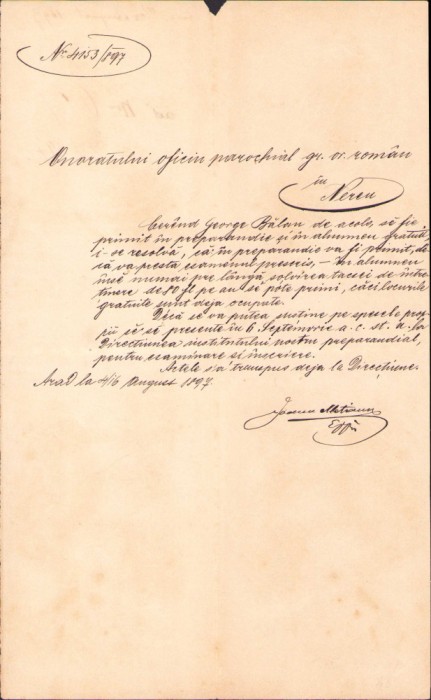 Nr. 4153/897
Onoratului oficiu parochial gr. or. român
în
Nereu
Cerênd George Bălan de acolo, să fie
primit în preparandie și în alumneu gratuit
i-se resolvă, că în preparandie va fi primit, de
că va presta esamenul prescris, – în alumneu
însĕ numai pre lângă solvirea tacsei de între
ținere de 80 fl pe an se pote primi, căci locurile
gratuite sunt deja ocupate.
Décă se va putea sustine pe spesele pro
prii să se presente în 6 Septemvrie a. c. st. v. la
Direcțiunea institutului nostru preparandial,
pentru esaminare și înscriere.
Actele s'a transpus deja la Direcțiune.
Arad la 4/16 August 1897.
Ioan Mețianu